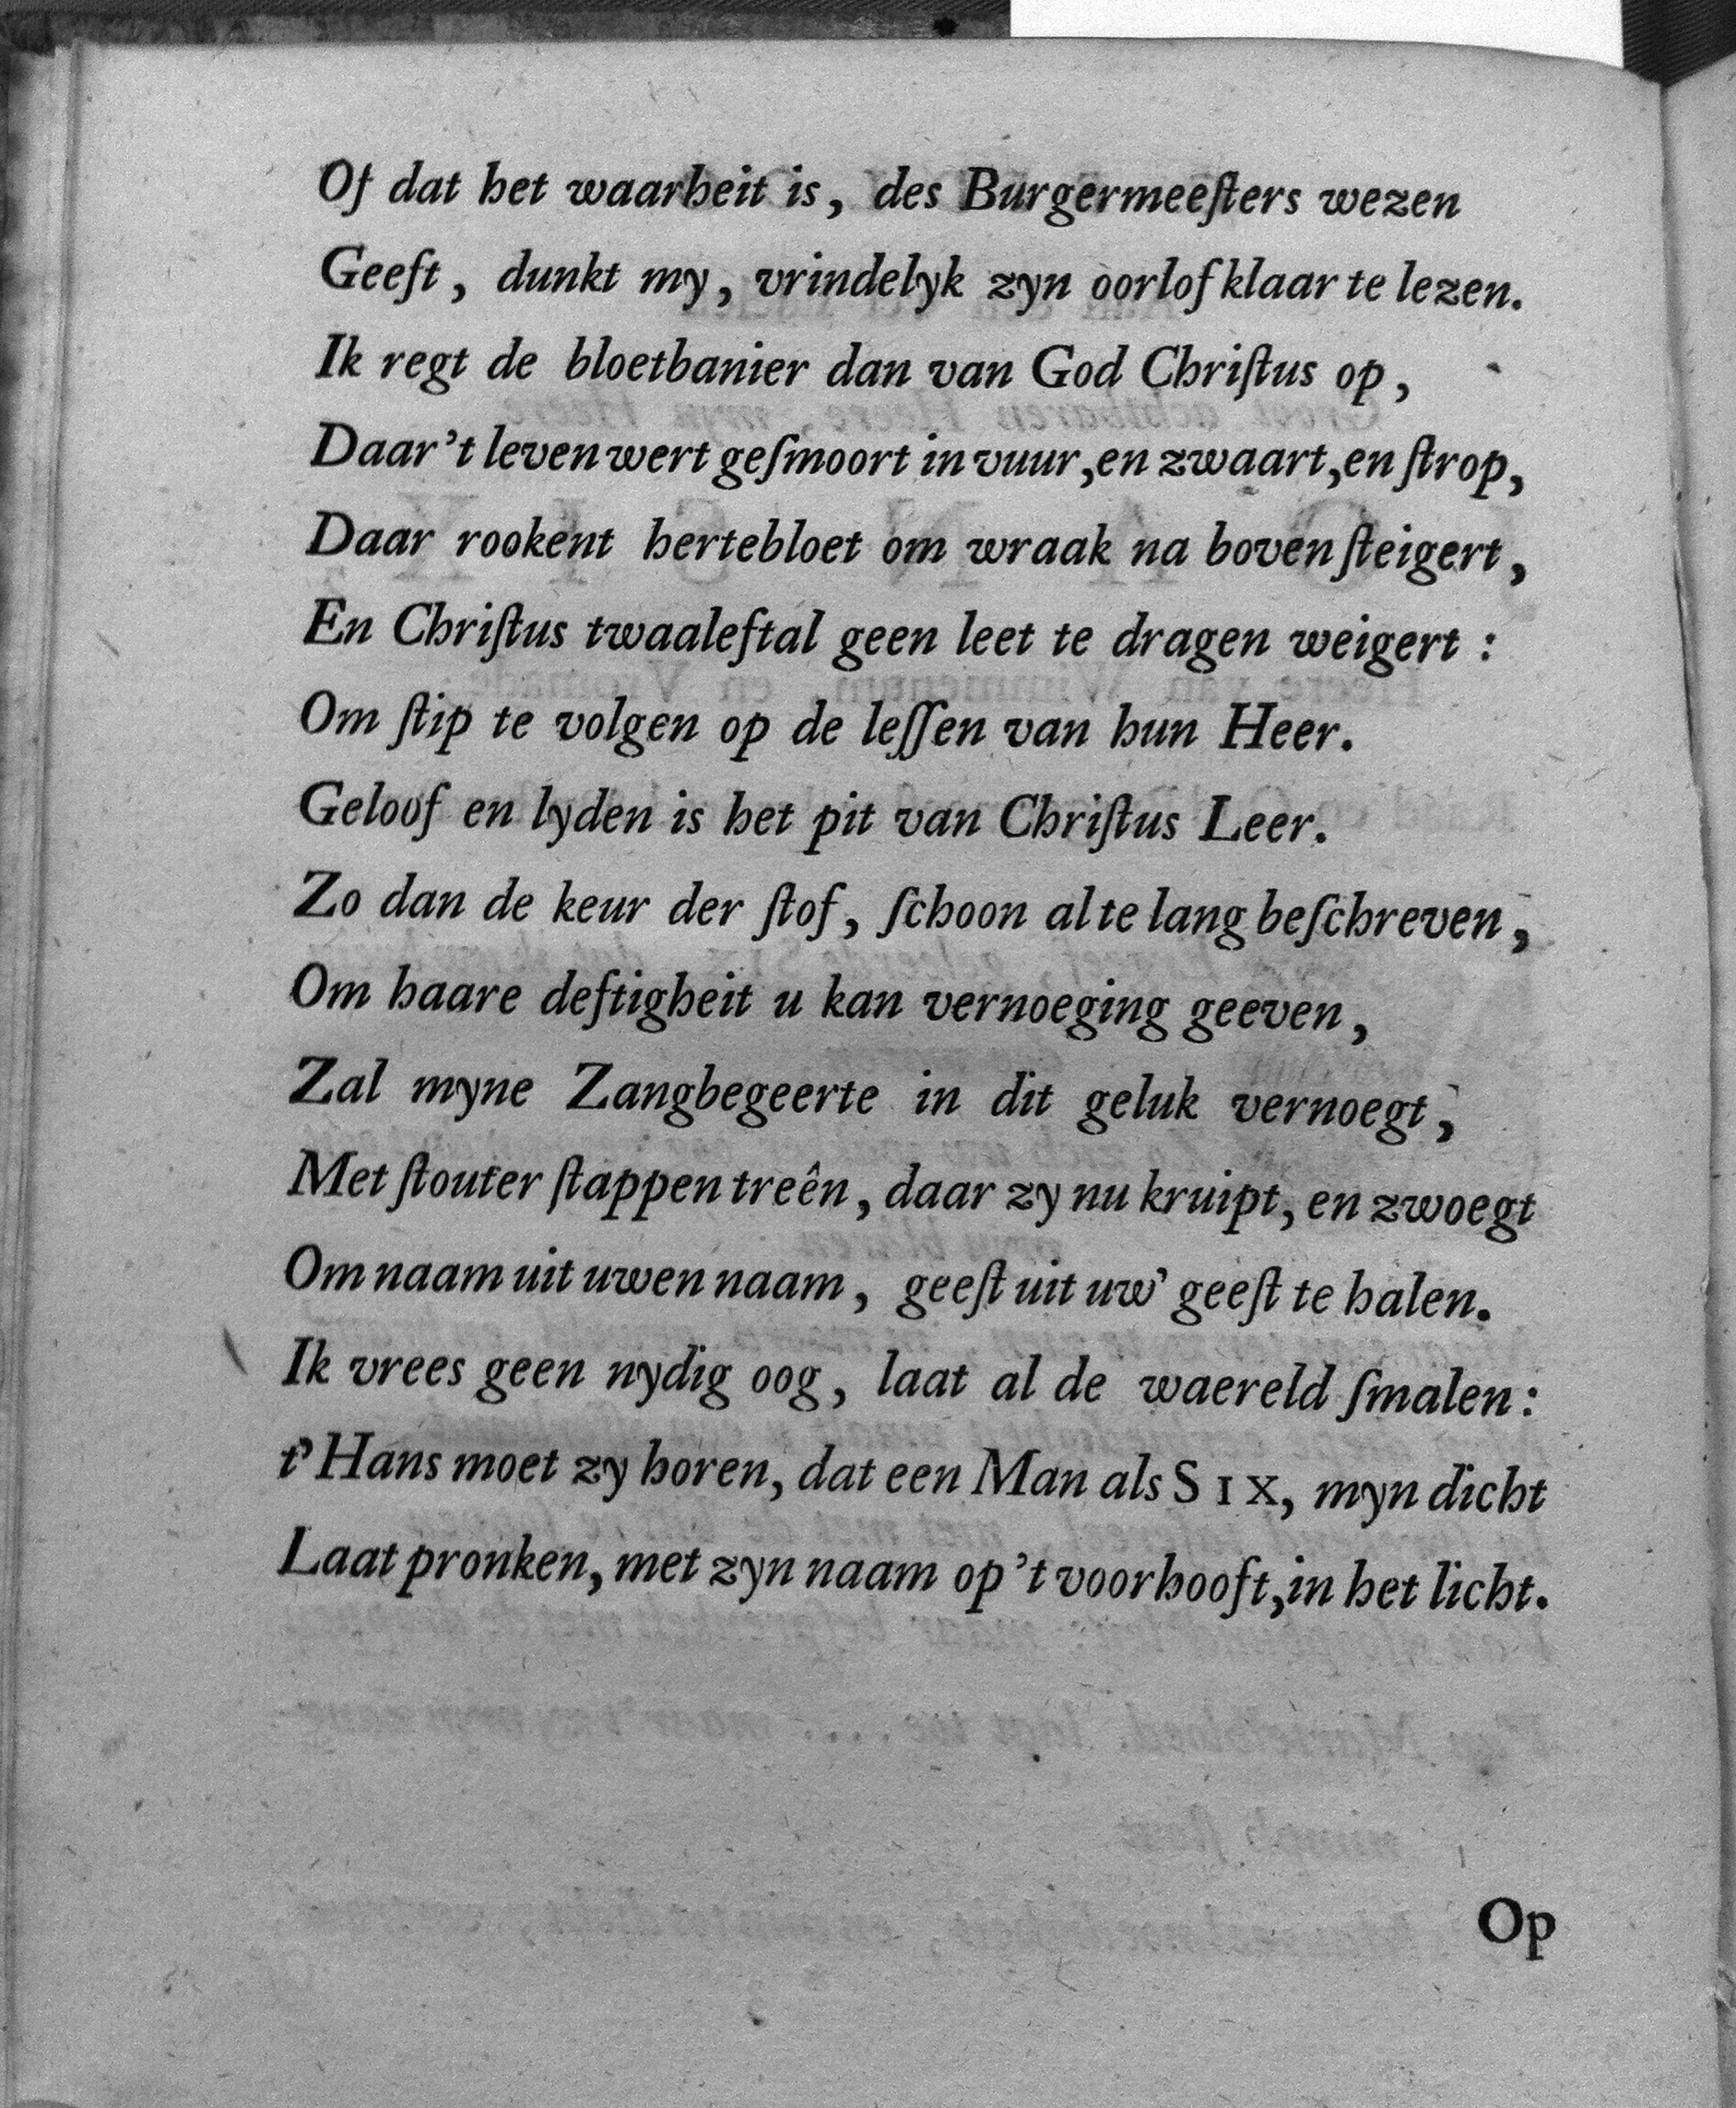 Of dat het waarheit is, des Burgermeeſters wezen
Geeft, dunkt my, vrindelyk zyn oorlof klaar te lezen.
Ik regt de bloetbanier dan van God Chriſtus op,
Daar 't leven wert geſmoort in vuur, en zwaart, en ſtrop,
Daar rookent hertebloet om wraak na boven ſteigert,
En Chriſtus twaaleftal geen leet te dragen weigert:
Om ſtip te volgen op de leſſen van hun Heer.
Geloof en lyden is het pit van Chriſtus Leer.
Zo dan de keur der ſtof, ſchoon al te lang beſchreven,
Om haare deftigheit u kan vernoeging geeven,
Zal myne Zangbegeerte in dit geluk vernoegt,
Met ſtouter ſtappen treên, daar zy nu kruipt, en zwoegt
Om naam uit uwen naam, geeſt uit uw' geeſt te halen.
Ik vrees geen nydig oog, laat al de waereld ſmalen:
t' Hans moet zy horen, dat een Man als SIX, myn dicht
Laat pronken, met zyn naam op 't voorhooft, in het licht.
Op